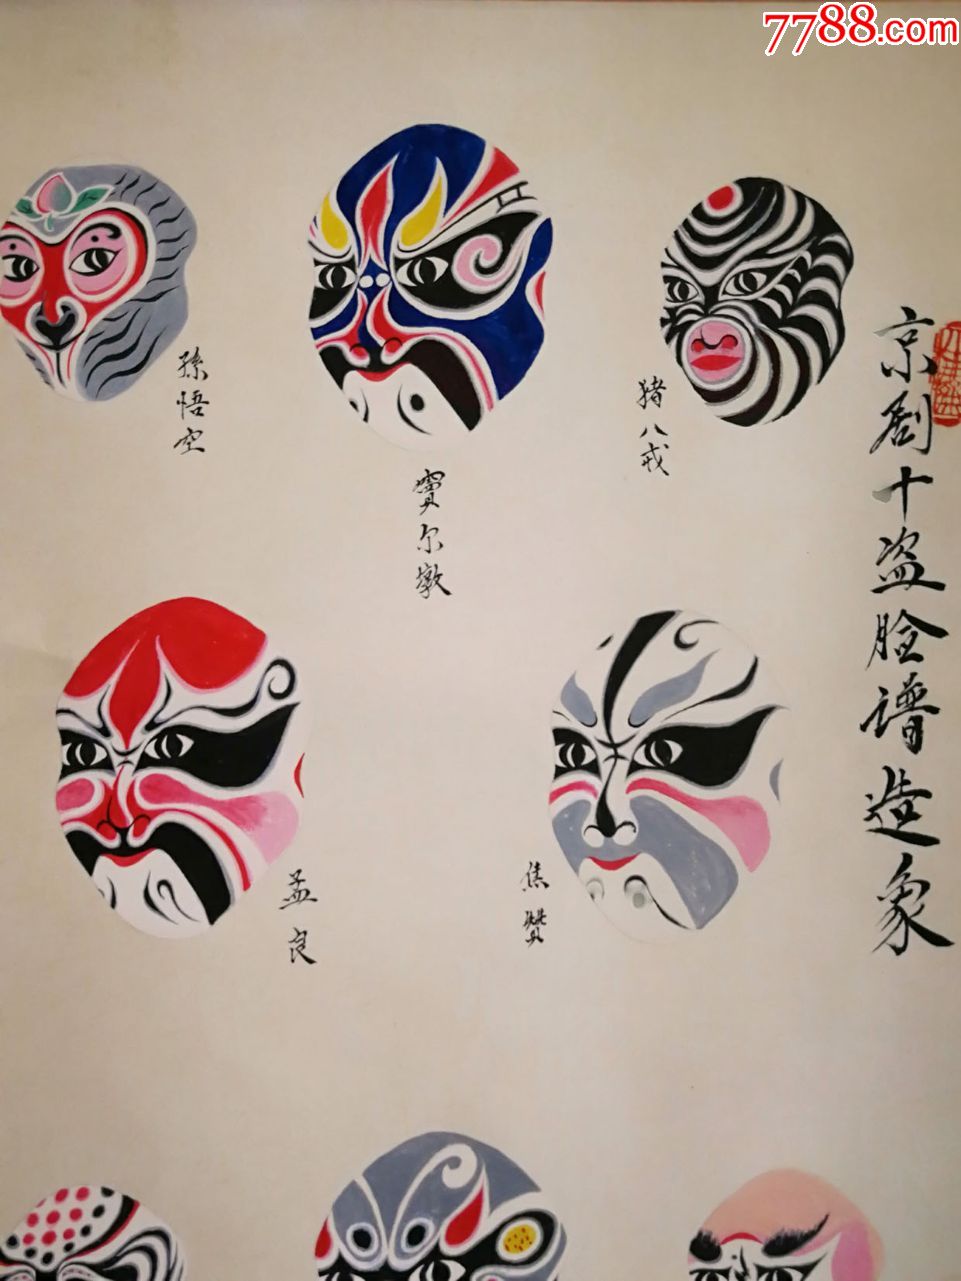 7788.com
京剧十盗脸谱造象
猪八戒
窦尔墩
孙悟空
焦贊
孟良